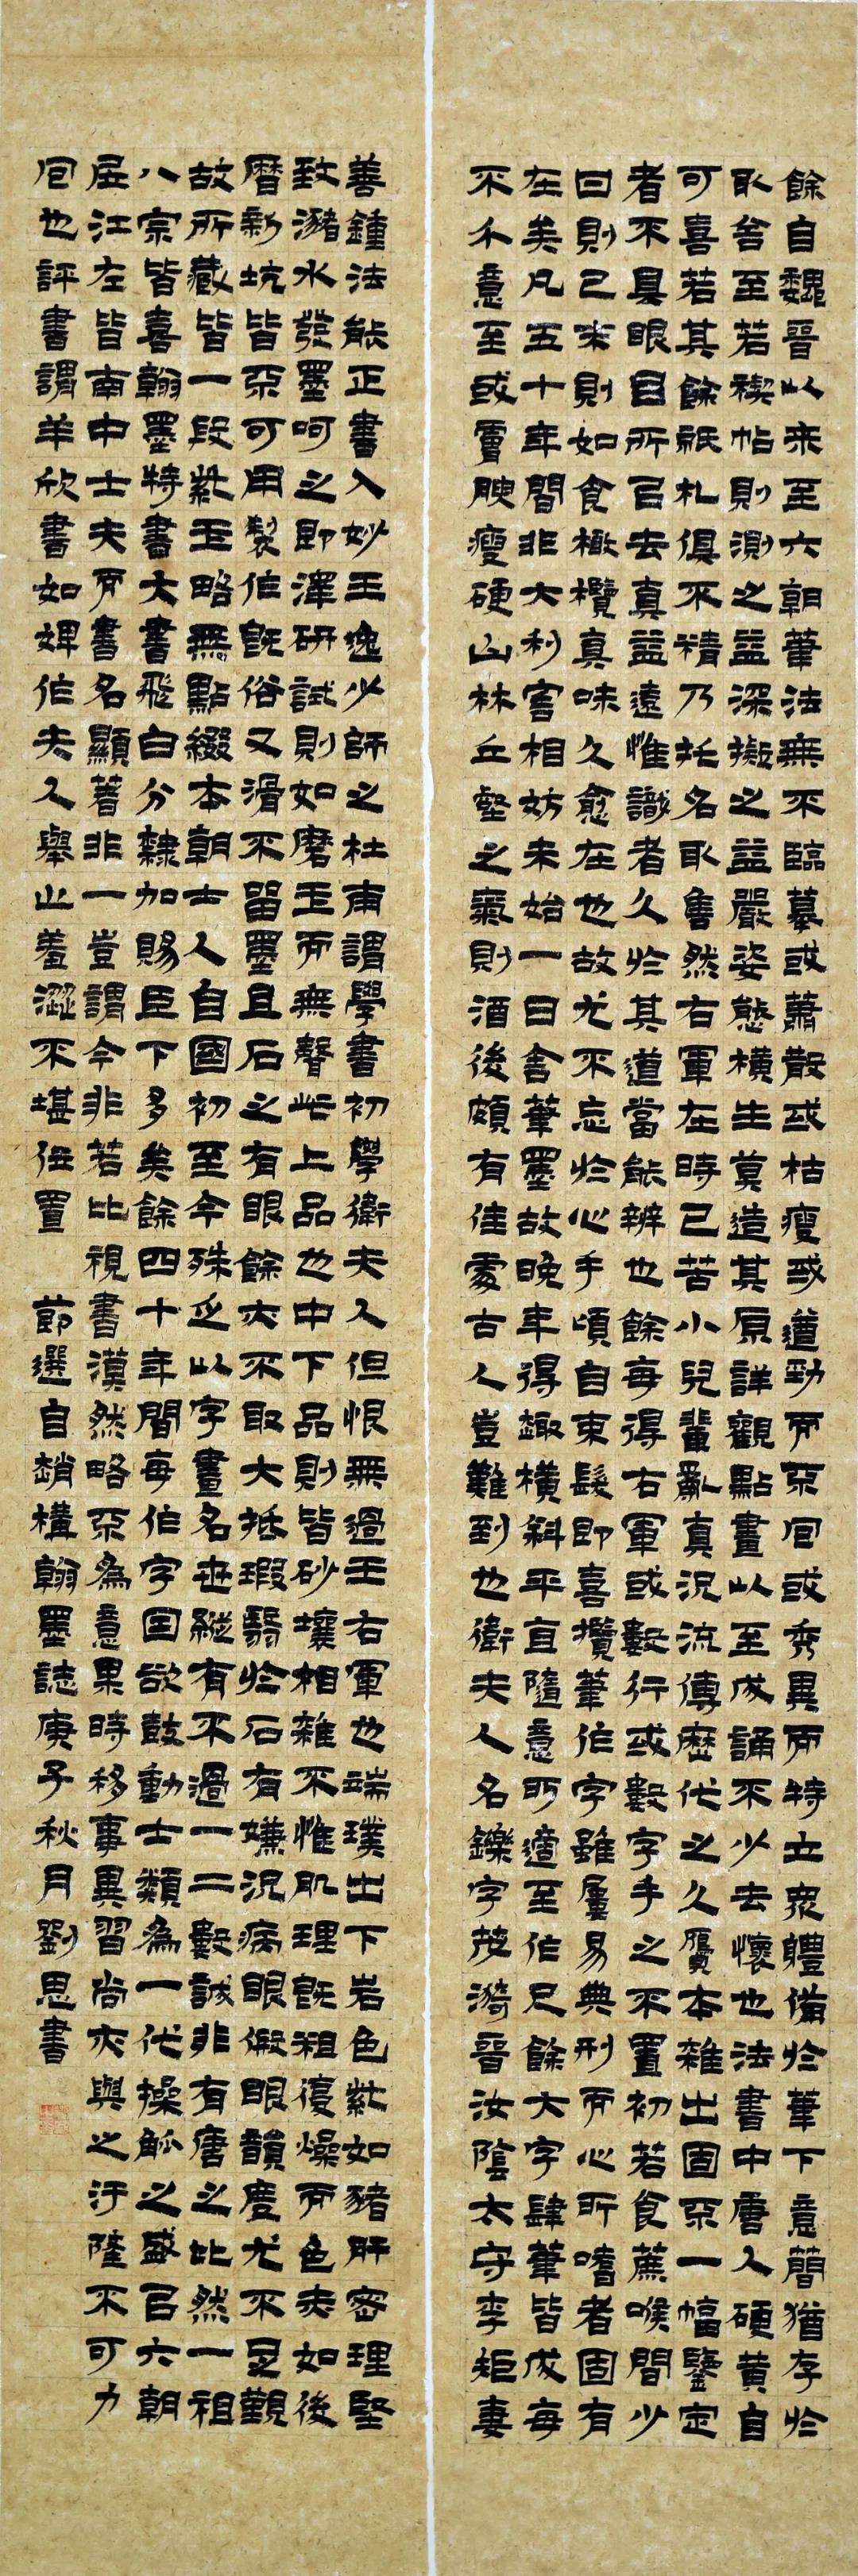 餘自魏晉以來至六朝筆法無不臨摹或蕭散或枯瘦或遒勁而不回或秀異而特立眾體備於筆下意簡猶存於
取舍至若禊帖則測之益深擬之益嚴姿態橫生莫造其原詳觀點畫以至成誦不少去懷也法書中唐人硬黃自
可喜若其餘紙札俱不精乃托名取售然右軍在時已苦小兒輩亂真況流傳歷代之久贋本雜出固不一幅鑒定
者不具眼目所以去真益遠惟識者久於其道當能辨也餘每得右軍或數行或數字手之不置初若食蔗喉間少
甘則已末則如食橄欖真味久愈在也故尤不忘於心手頃自束髮即喜攬筆作字雖屢易典刑而心所嗜者固有
在矣凡五十年間非大利害相妨未始一日舍筆墨故晚年得趣橫斜平直隨意所適至作尺餘大字肆筆皆成每
不介意至或膚腴瘦硬山林丘壑之氣則酒後頗有佳處古人豈難到也衛夫人名鑠字茂漪晉汝陰太守李矩妻
善鍾法能正書入妙王逸少師之杜甫謂學書初學衛夫人但恨無過王右軍也端璞出下岩色紫如豬肝密理堅
致瀦水發墨呵之即澤研試則如磨玉而無聲此上品也中下品則皆砂壤相雜不惟肌理既粗復燥而色赤如後
曆新坑皆不可用製作既俗又滑不留墨且石之有眼餘亦不取大抵瑕翳於石有嫌況病眼假眼韻度尤不足觀
故所藏皆一段紫玉略無點綴本朝士人自國初至今殊乏以字畫名世縱有不過一二數誠非有唐之比然一祖
八宗皆喜翰墨特書大書飛白分隸加賜臣下多矣餘四十年間每作字因欲鼓動士類為一代操觚之盛以六朝
居江左皆南中士夫而書名顯著非一豈謂今非若比視書漠然略不為意果時移事異習尚亦與之污隆不可力
回也評書謂羊欣書如婢作夫人舉止羞澀不堪位置 節選自趙構翰墨誌庚子秋月劉思書